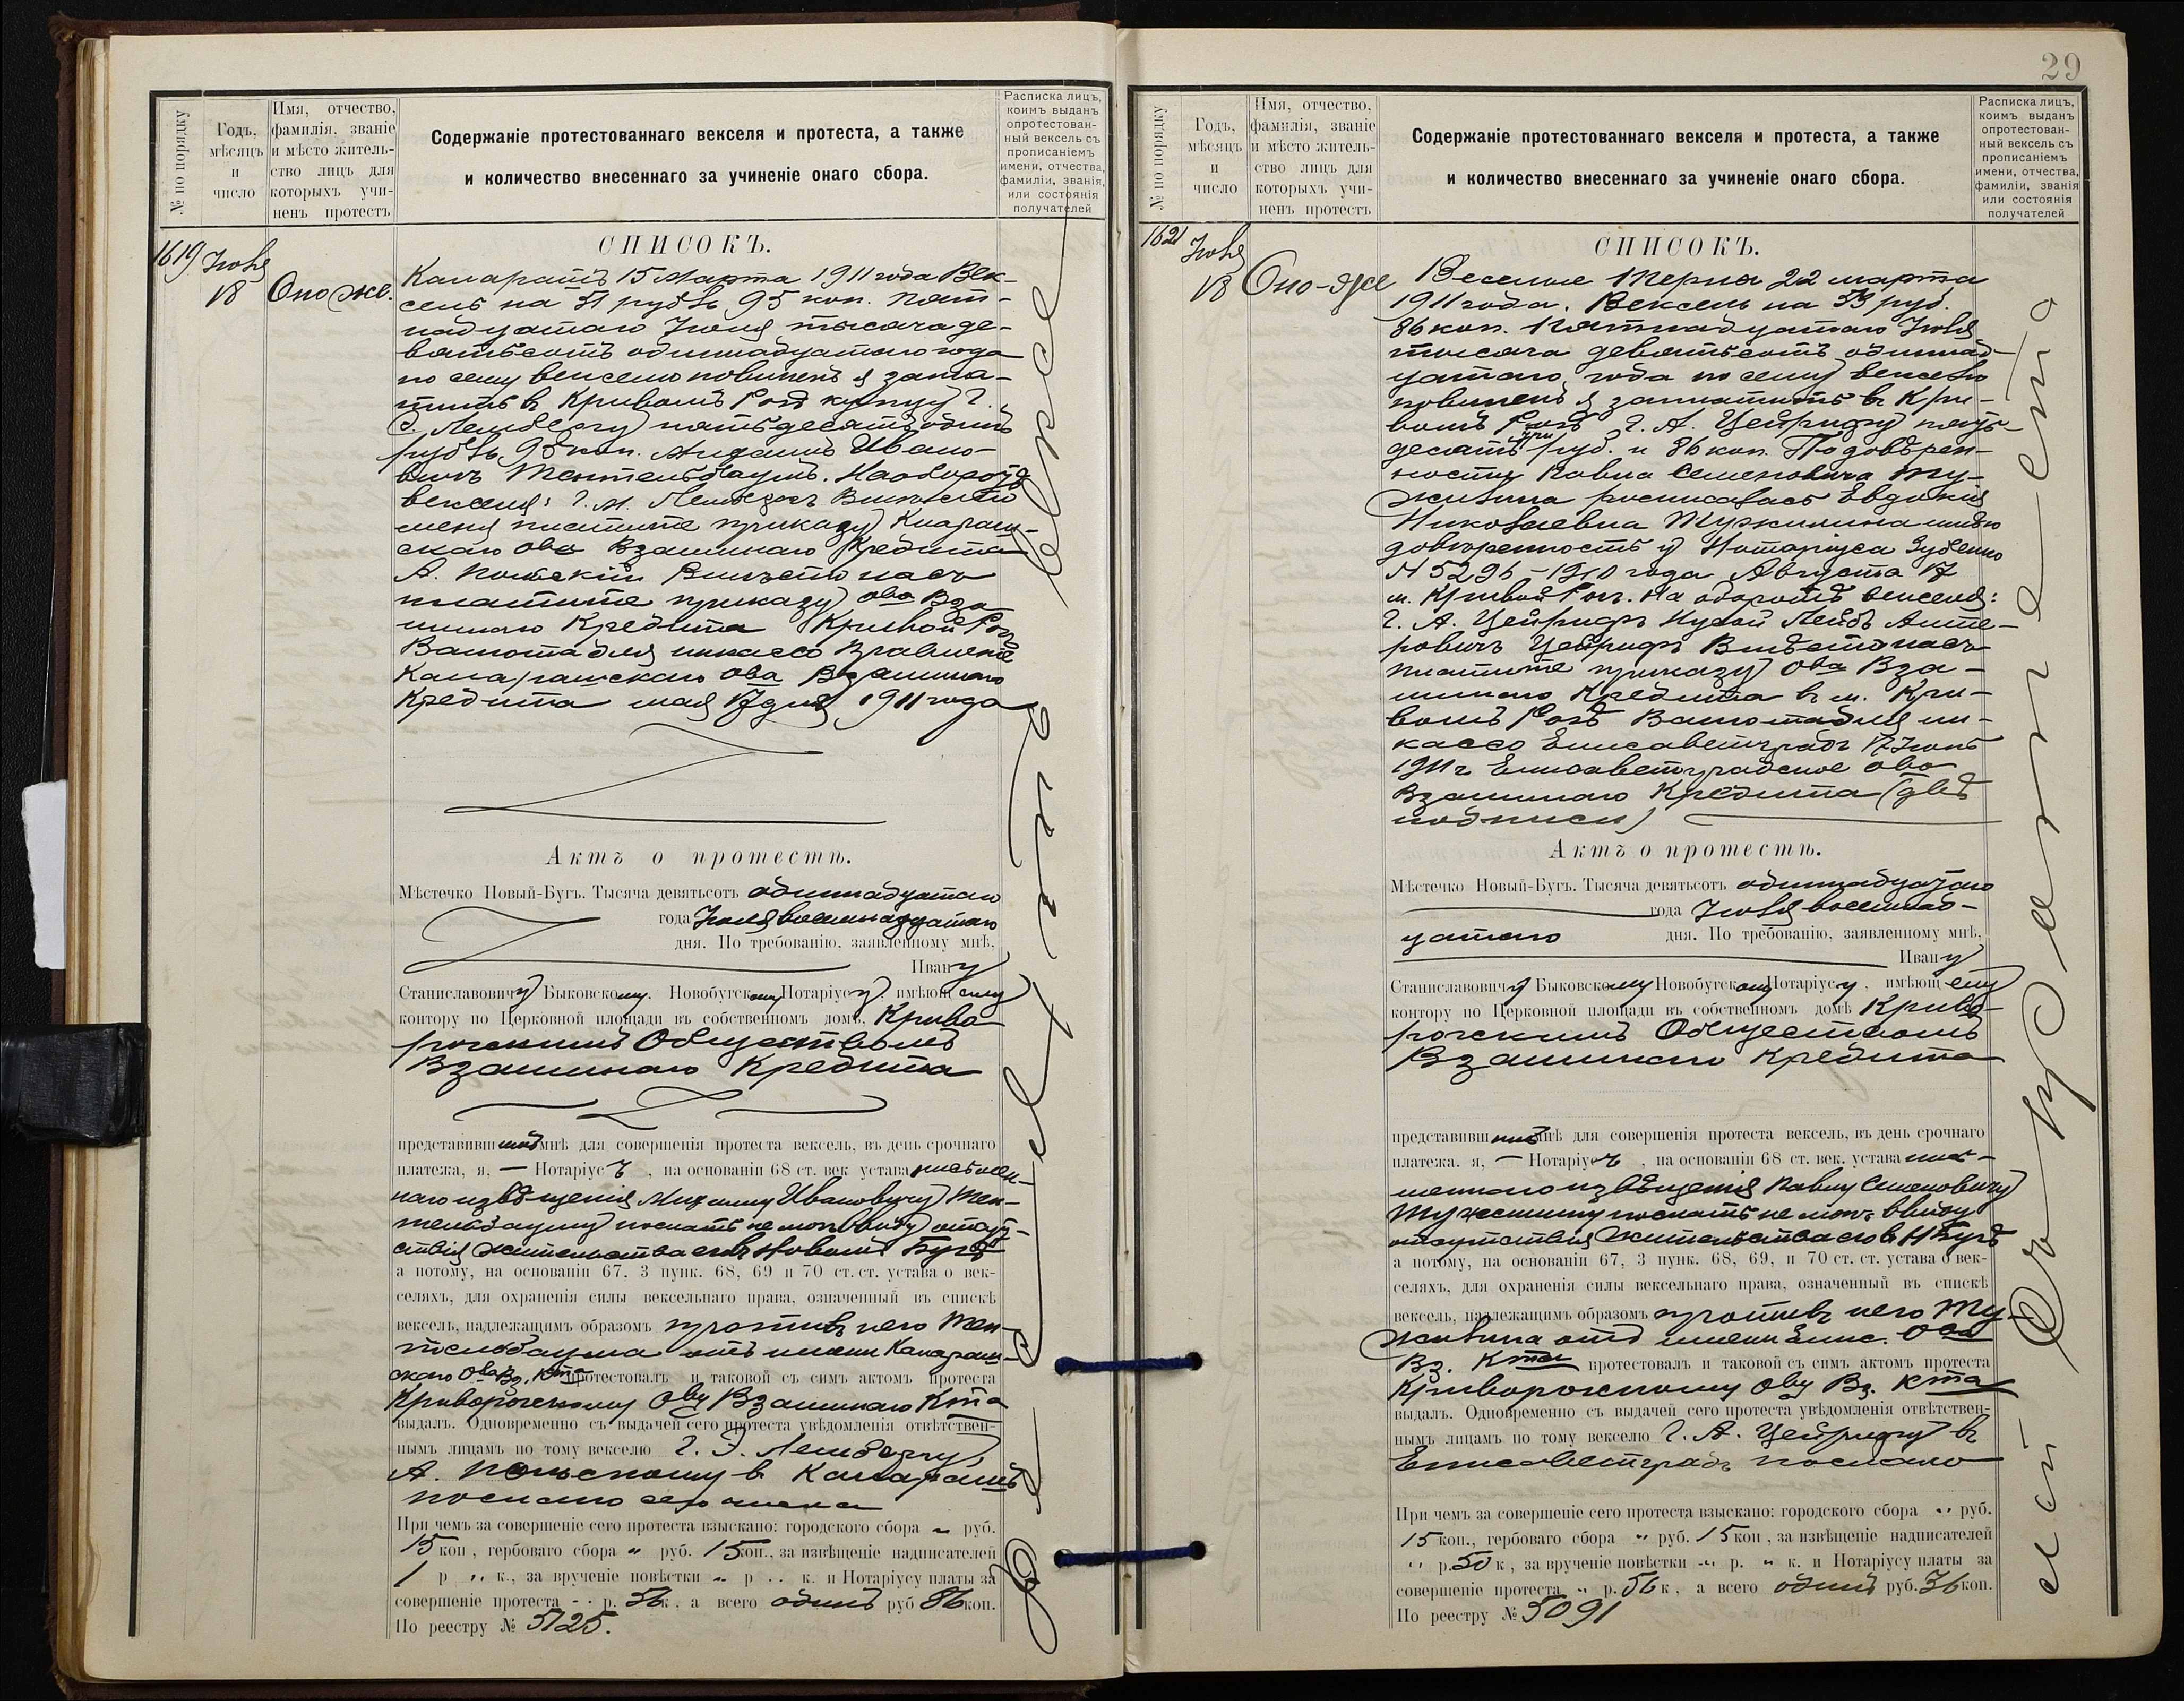 29
№ по порядку
Годъ,
мѣсяцъ
и
число
Имя, отчество,
фамилія, званіе
и мѣсто житель-
ство лицъ для
которыхъ учи-
ненъ протестъ
Содержаніе протестованнаго векселя и протеста, а также
и количество внесеннаго за учиненіе онаго сбора.
Расписка лицъ,
коимъ выданъ
опротестован-
ный вексель съ
прописаніемъ
имени, отчества,
фамиліи, званія,
или состоянія
получателей
СПИСОКЪ.
1619 Іюля
18 Оно же.
15 Марта 1911 года Век-
сель на 51 рубль 95 коп. Пят-
надцатаго Іюля тысяча де-
вятьсотъ одиннадцатаго года
по сему векселю повиненъ я запла-
тить въ Кривомъ Рогѣ купцу Г.
пятьдесятъ одинъ
рубль 95 коп. Ивано-
вичъ На оборотѣ
векселя: Г. Вмѣсто
меня платите приказу
скаго Ова Взаимнаго Кредита
А. Вмѣсто насъ
платите приказу Ова Вза
имнаго Кредита Кривой Рогъ
Валюта для инкассо Правленіе
Ова Взаимнаго
Кредита мая 17 дня 1911 года
Актъ о протестѣ.
Мѣстечко Новый-Бугъ. Тысяча девятьсотъ одиннадцатаго
года Іюля восемнадцатаго
дня. По требованію, заявленному мнѣ,
Ивану
Станиславовичу Быковскому, Новобугскому Нотаріусу, имѣющему
контору по Церковной площади въ собственномъ домѣ, Криво
рожскимъ Обществомъ
Взаимнаго Кредита
представившимъ мнѣ для совершенія протеста вексель, въ день срочнаго
платежа, я, — Нотаріусъ, на основаніи 68 ст. век устава письмен-
наго извѣщенія Ивановичу Тен-
послать не могъ ввиду отсут-
ствія жительства его въ Новомъ Бугѣ
а потому, на основаніи 67. 3 пунк. 68, 69 и 70 ст. ст. устава о век-
селяхъ, для охраненія силы вексельнаго права, означенный въ спискѣ
вексель, надлежащимъ образомъ противъ него Тен-
отъ имени
скаго Ова Вз. Кта протестовалъ и таковой съ симъ актомъ протеста
Криворожскому Ову Взаимнаго Кта
выдалъ. Одновременно съ выдачей сего протеста увѣдомленія отвѣтствен-
нымъ лицамъ по тому векселю Г.
А. въ
послано
При чемъ за совершеніе сего протеста взыскано: городского сбора „ руб.
15 коп, гербоваго сбора „ руб. 15 коп., за извѣщеніе надписателей
1 р „ к., за врученіе повѣстки „ р „ к. и Нотаріусу платы за
совершеніе протеста „ р. 56 к, а всего одинъ руб 86 коп.
По реестру № 5125.
№ по порядку
Годъ,
мѣсяцъ
и
число
Имя, отчество,
фамилія, званіе
и мѣсто житель-
ство лицъ для
которыхъ учи-
ненъ протестъ
Содержаніе протестованнаго векселя и протеста, а также
и количество внесеннаго за учиненіе онаго сбора.
Расписка лицъ,
коимъ выданъ
опротестован-
ный вексель съ
прописаніемъ
имени, отчества,
фамиліи, званія
или состоянія
получателей
СПИСОКЪ.
1621 Іюля
18 Оно-же
Веселые Терны 22 марта
1911 года. Вексель на 53 руб.
86 коп. Пятнадцатаго Іюля
тысяча девятьсотъ одиннад-
цатаго года по сему векселю
повиненъ я заплатить въ Кри-
вомъ Рогѣ Г. А. Цейрифу пять-
десятъ три руб. и 86 коп. По довѣрен-
ности Павла Семеновича Ту-
жилина росписалась Евдокія
Николаевна Тужилина
довѣренность у Нотаріуса Зубенко
№ 5296 – 1910 года Августа 17
м. Кривой Рогъ. На оборотѣ векселя:
Г. А. Цейрифъ
Цейрифъ Вмѣсто насъ
платите приказу Ова Вза-
имнаго Кредита въ м. Кри-
вомъ Рогѣ Валюта для ин-
кассо Елисаветградъ 17 Іюня
1911 г. Елисаветградское Ово
Взаимнаго Кредита (двѣ
подписи)
Актъ о протестѣ.
Мѣстечко Новый-Бугъ. Тысяча девятьсотъ одиннадцатаго
года Іюля восемнад-
цатаго дня. По требованію, заявленному мнѣ,
Ивану
Станиславовичу Быковскому Новобугскому Нотаріусу, имѣющему
контору по Церковной площади въ собственномъ домѣ Криво-
рожскимъ Обществомъ
Взаимнаго Кредита
представившимъ мнѣ для совершенія протеста вексель, въ день срочнаго
платежа. я, — Нотаріусъ, на основаніи 68 ст. век. устава пись-
меннаго извѣщенія Павлу Семеновичу
Тужилину послать не могъ ввиду
отсутствія жительства его въ Н Бугѣ
а потому, на основаніи 67, 3 пунк. 68, 69, и 70 ст. ст. устава о век-
селяхъ, для охраненія силы вексельнаго права, означенный въ спискѣ
вексель, надлежащимъ образомъ противъ него Ту
жилина отъ имени Елис. Ова
Вз. Кта протестовалъ и таковой съ симъ актомъ протеста
Криворожскому Ову Вз. Кта
выдалъ. Одновременно съ выдачей сего протеста увѣдомленія отвѣтствен-
нымъ лицамъ по тому векселю Г. А. Цейрифу въ
Елисаветградъ послано
При чемъ за совершеніе сего протеста взыскано: городского сбора „ руб.
15 коп., гербоваго сбора „ руб. 15 коп, за извѣщеніе надписателей
„ р. 50 к, за врученіе повѣстки „ р. „ к. и Нотаріусу платы за
совершеніе протеста „ р. 56 к, а всего одинъ руб. 36 коп.
По реестру № 5091